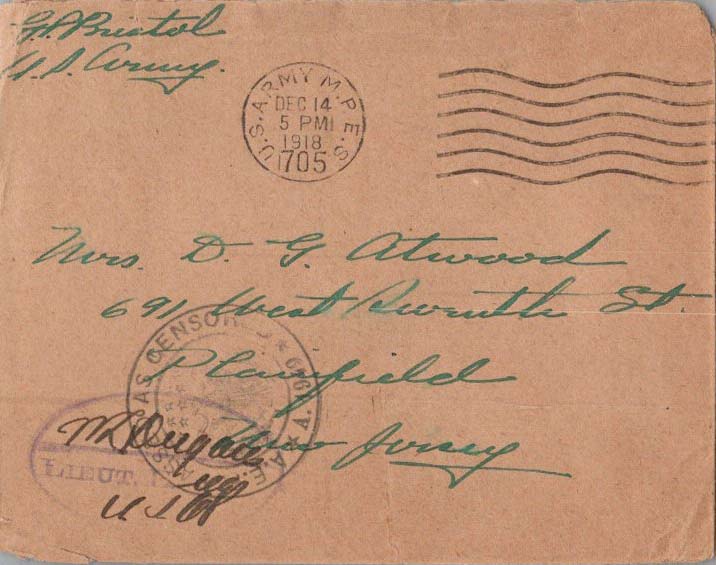 G. P. Bristol
U. S. Army.
U.S. ARMY M.P.E.S.
DEC 14
5 PM
1918
705
Mrs. D. G. Atwood
691 West Seventh St.
Plainfield
New Jersey
PASSED AS CENSORED
A.E.F.
LIEUT.